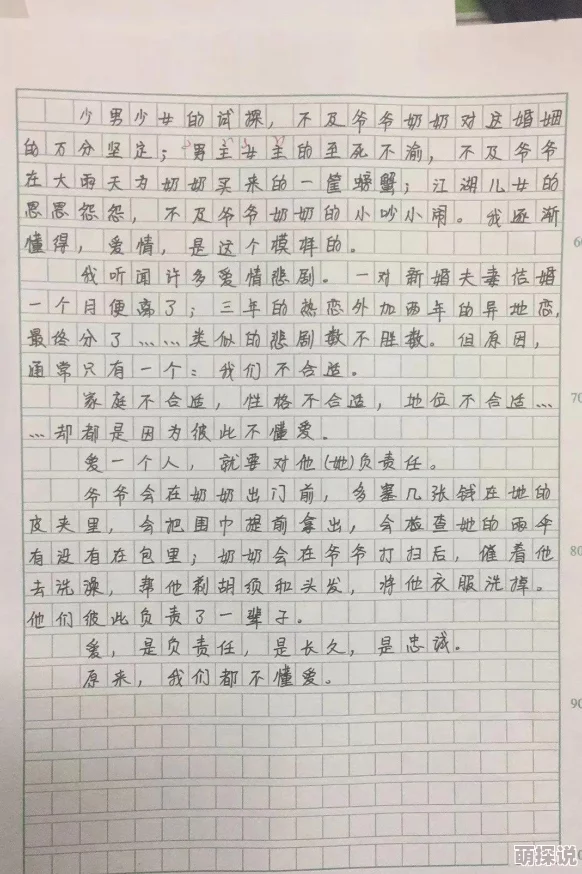 少男少女的试探，不及爷爷奶奶对这婚姻
的万分坚定；男主女主的至死不渝，不及爷爷
在大雨天为奶奶买来的一筐螃蟹；江湖儿女的
恩恩怨怨，不及爷爷奶奶的小吵小闹。我逐渐
懂得，爱情，是这个模样的。
我听闻许多爱情悲剧。一对新婚夫妻结婚
一个月便离了；三年的热恋外加两年的异地恋，
最终分了……类似的悲剧数不胜数。但原因，
通常只有一个：我们不合适。
家庭不合适，性格不合适，地位不合适…
…却都是因为彼此不懂爱。
爱一个人，就要对他（她）负责任。
爷爷会在奶奶出门前，多塞几张钱在她的
皮夹里，会把围巾提前拿出，会检查她的雨伞
有没有在包里；奶奶会在爷爷打扫后，催着他
去洗澡，帮他剃胡须和头发，将他衣服洗掉。
他们彼此负责了一辈子。
爱，是负责任，是长久，是忠诚。
原来，我们都不懂爱。
70
80
90
萌探说